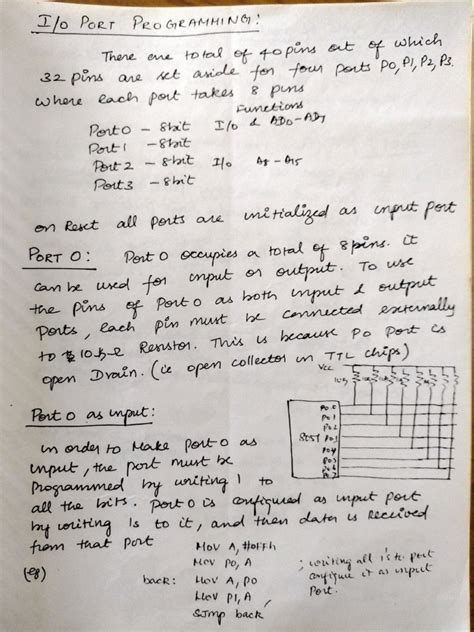 I/O PORT PROGRAMMING:
There are total of 40 pins out of which
32 pins are set aside for four ports P0, P1, P2, P3
where each port takes 8 pins
Functions
Port 0 - 8bit I/o & AD0-AD7
Port 1 - 8bit
Port 2 - 8bit I/o A8-A15
Port 3 - 8bit
on Reset all ports are initialized as input port
PORT 0: Port 0 occupies a total of 8 pins. it
can be used for input or output. To use
the pins of Port 0 as both input & output
Ports, each pin must be connected externally
to 10 Resistor. This is because P0 Port is
open Drain. (ie open collector in TTL chips)
Vcc
10
Port 0 as input:
8051
P0.0
P0.1
P0.2
P0.3
P0.4
P0.5
P0.6
in order to Make Port 0 as
input, the port must be
Programmed by writing 1 to
all the bits. Port 0 is configured as input port
by writing 1s to it, and then data is received
from that port
(eg)
MOV A, #0FFh
MOV P0, A ; writing all 1's to port
back: MOV A, P0 configure it as input
MOV P1, A Port.
SJmp back